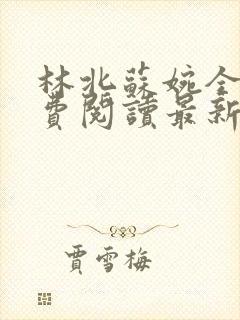 林北蘇婉全
費閱讀最新
賈雪梅